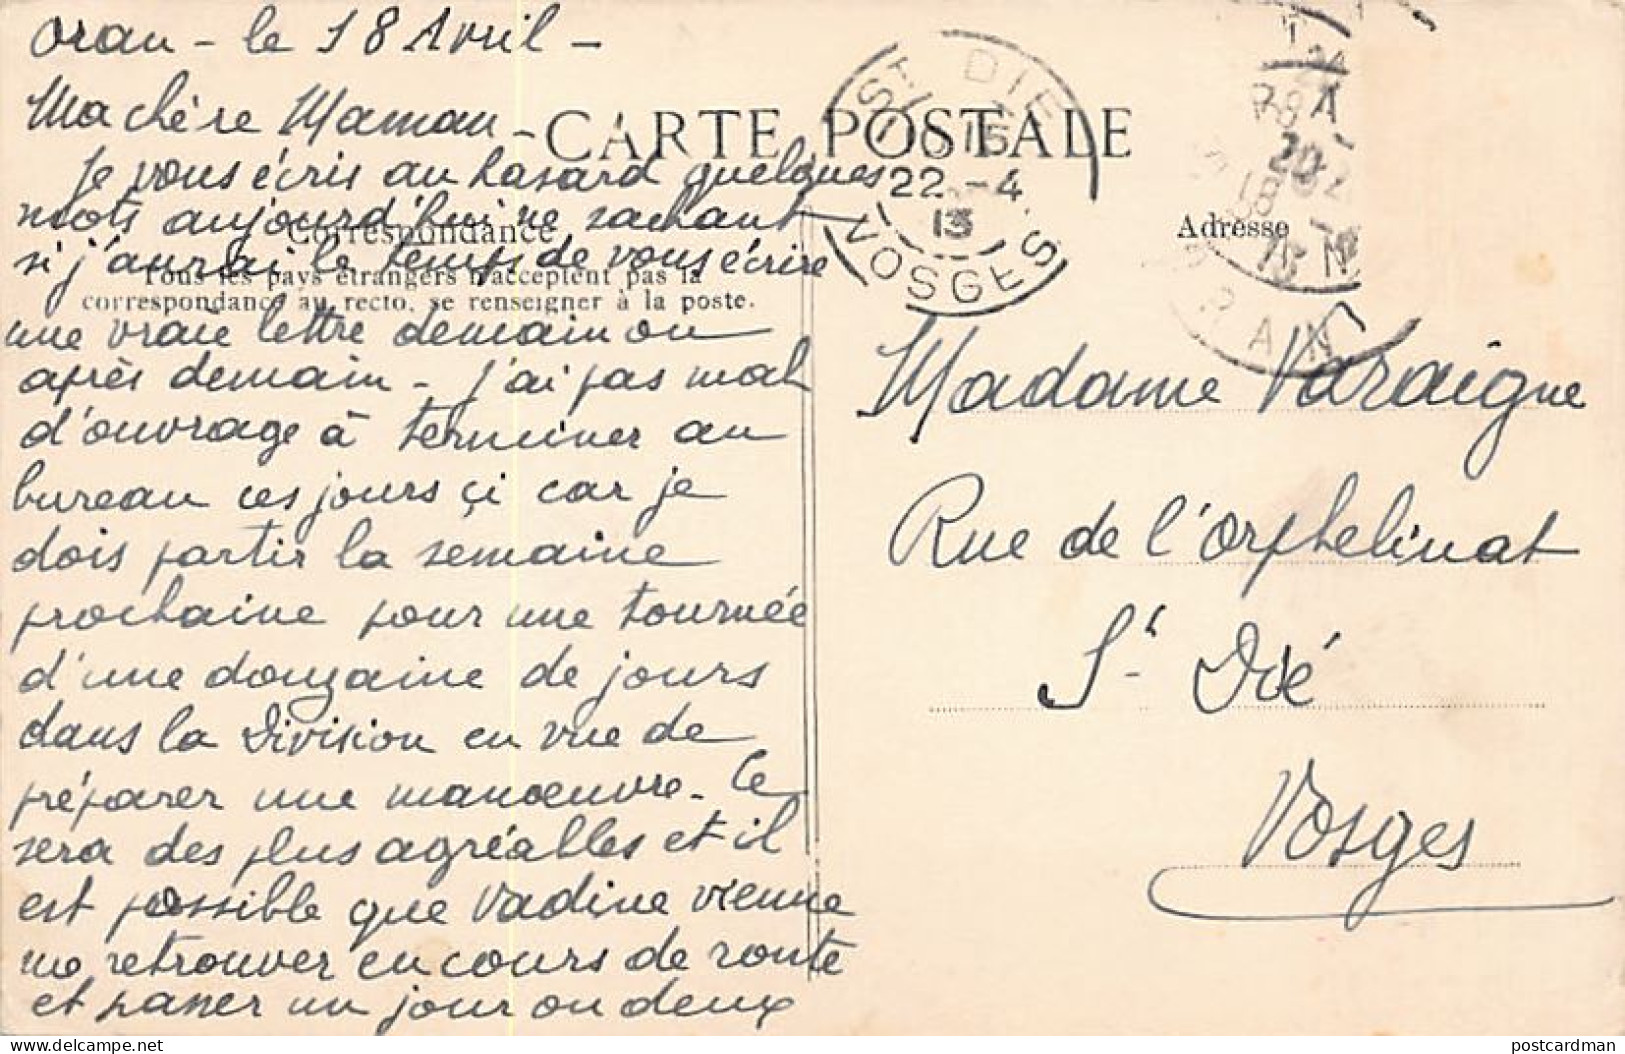 Oran - le 18 Avril -
Ma chère Maman
Je vous écris au hasard quelques
mots aujourd'hui ne sachant
si j'aurai le temps de vous écrire
une vraie lettre demain ou
après demain - J'ai pas mal
d'ouvrage à terminer au
bureau ces jours çi car je
dois partir la semaine
prochaine pour une tournée
d'une douzaine de jours
dans la Division en vue de
préparer une manoeuvre - Ce
sera des plus agréables et il
est possible que Nadine vienne
me retrouver en cours de route
et passer un jour ou deux
- CARTE POSTALE
Correspondance
Tous les pays étrangers n'acceptent pas la
correspondance au recto, se renseigner à la poste.
Adresse
ST DIE
15
22 - 4
13
VOSGES
ORAN
Madame Varaigne
Rue de l'Orphelinat
St Dié
Vosges
postcardman